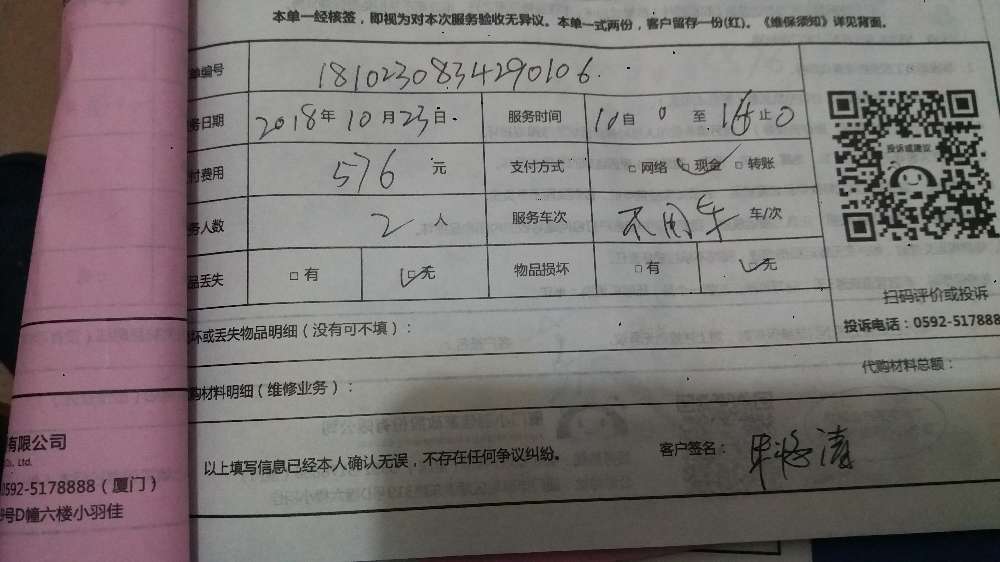 本单一经核签，即视为对本次服务验收无异议。本单一式两份，客户留存一份(红)。《维保须知》详见背面。
单编号 1810230834290106.
务日期 2018年10月23日. 服务时间 10自0至16止0
付费用 576元 支付方式 □网络 □现金 □转账
务人数 2人 服务车次 不用车 车/次
品丢失 □有 □无 物品损坏 □有 □无
投诉或建议
扫码评价或投诉
投诉电话：0592-517888
坏或丢失物品明细（没有可不填）：
购材料明细（维修业务）： 代购材料总额：
以上填写信息已经本人确认无误，不存在任何争议纠纷。 客户签名：
有限公司
Co., Ltd.
0592-5178888（厦门）
号D幢六楼小羽佳